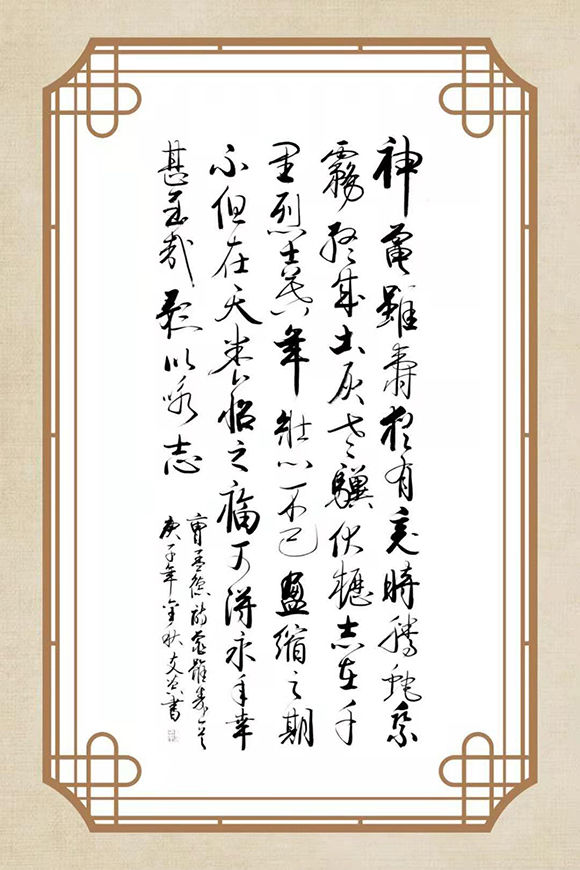 神龜雖壽猶有竟時騰蛇乘
霧終成土灰老驥伏櫪志在千
里烈士暮年壯心不已盈縮之期
不但在天養怡之福可得永年幸
甚至哉歌以咏志
曹孟德詩龜雖壽
庚子年金秋文書